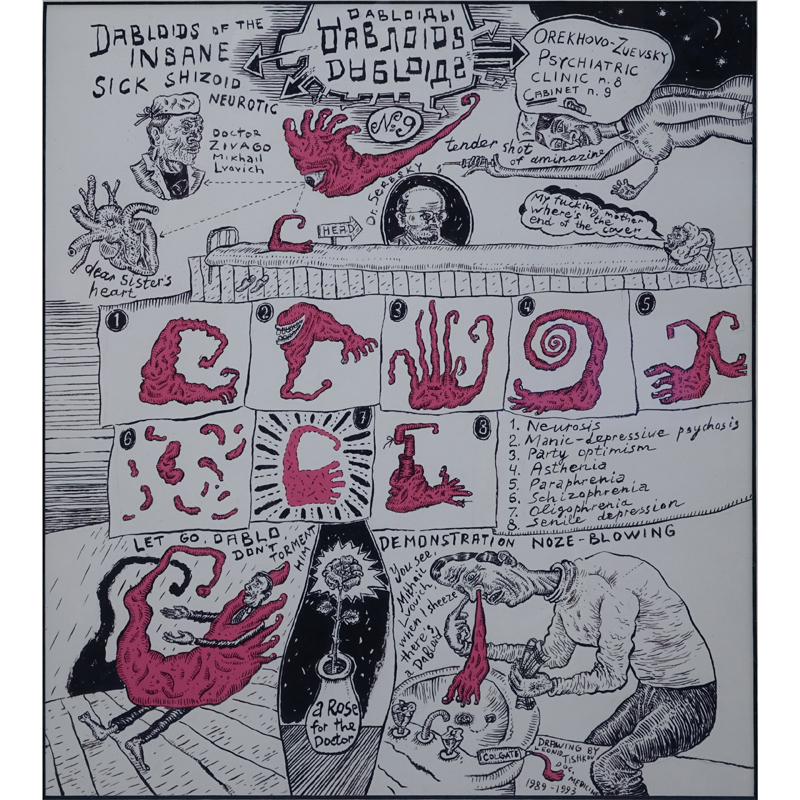 DABLOIDS OF THE
INSANE
SICK SHIZOID
NEUROTIC
DABLOIДЫ
DABЛOIDS
DABLOIDS
№9
OREKHOVO-ZUEVSKY
PSYCHIATRIC
CLINIC n.8
CABINET n.9
DOCTOR
ZIVAGO
Mikhail
Lvovich
tender shot
of aminazine
Dr. Serbsky
HEAD
My fucking mother
where's the
end of the cover
dear sister's
heart
1
2
3
4
5
6
7
8
1. Neurosis
2. Manic-depressive psychosis
3. Party optimism
4. Asthenia
5. Paraphrenia
6. Schizophrenia
7. Oligophrenia
8. Senile depression
LET GO, DABLO
DON'T
TORMENT
HIM
a Rose
for the
Doctor
DEMONSTRATION NOZE-BLOWING
You see,
Mikhail
Lvovich
when I sheeze
there's
a Dabloid
COLGATE
DRAWING BY
LEONID TISHKOV
DOC. MEDICINE
1989-1993